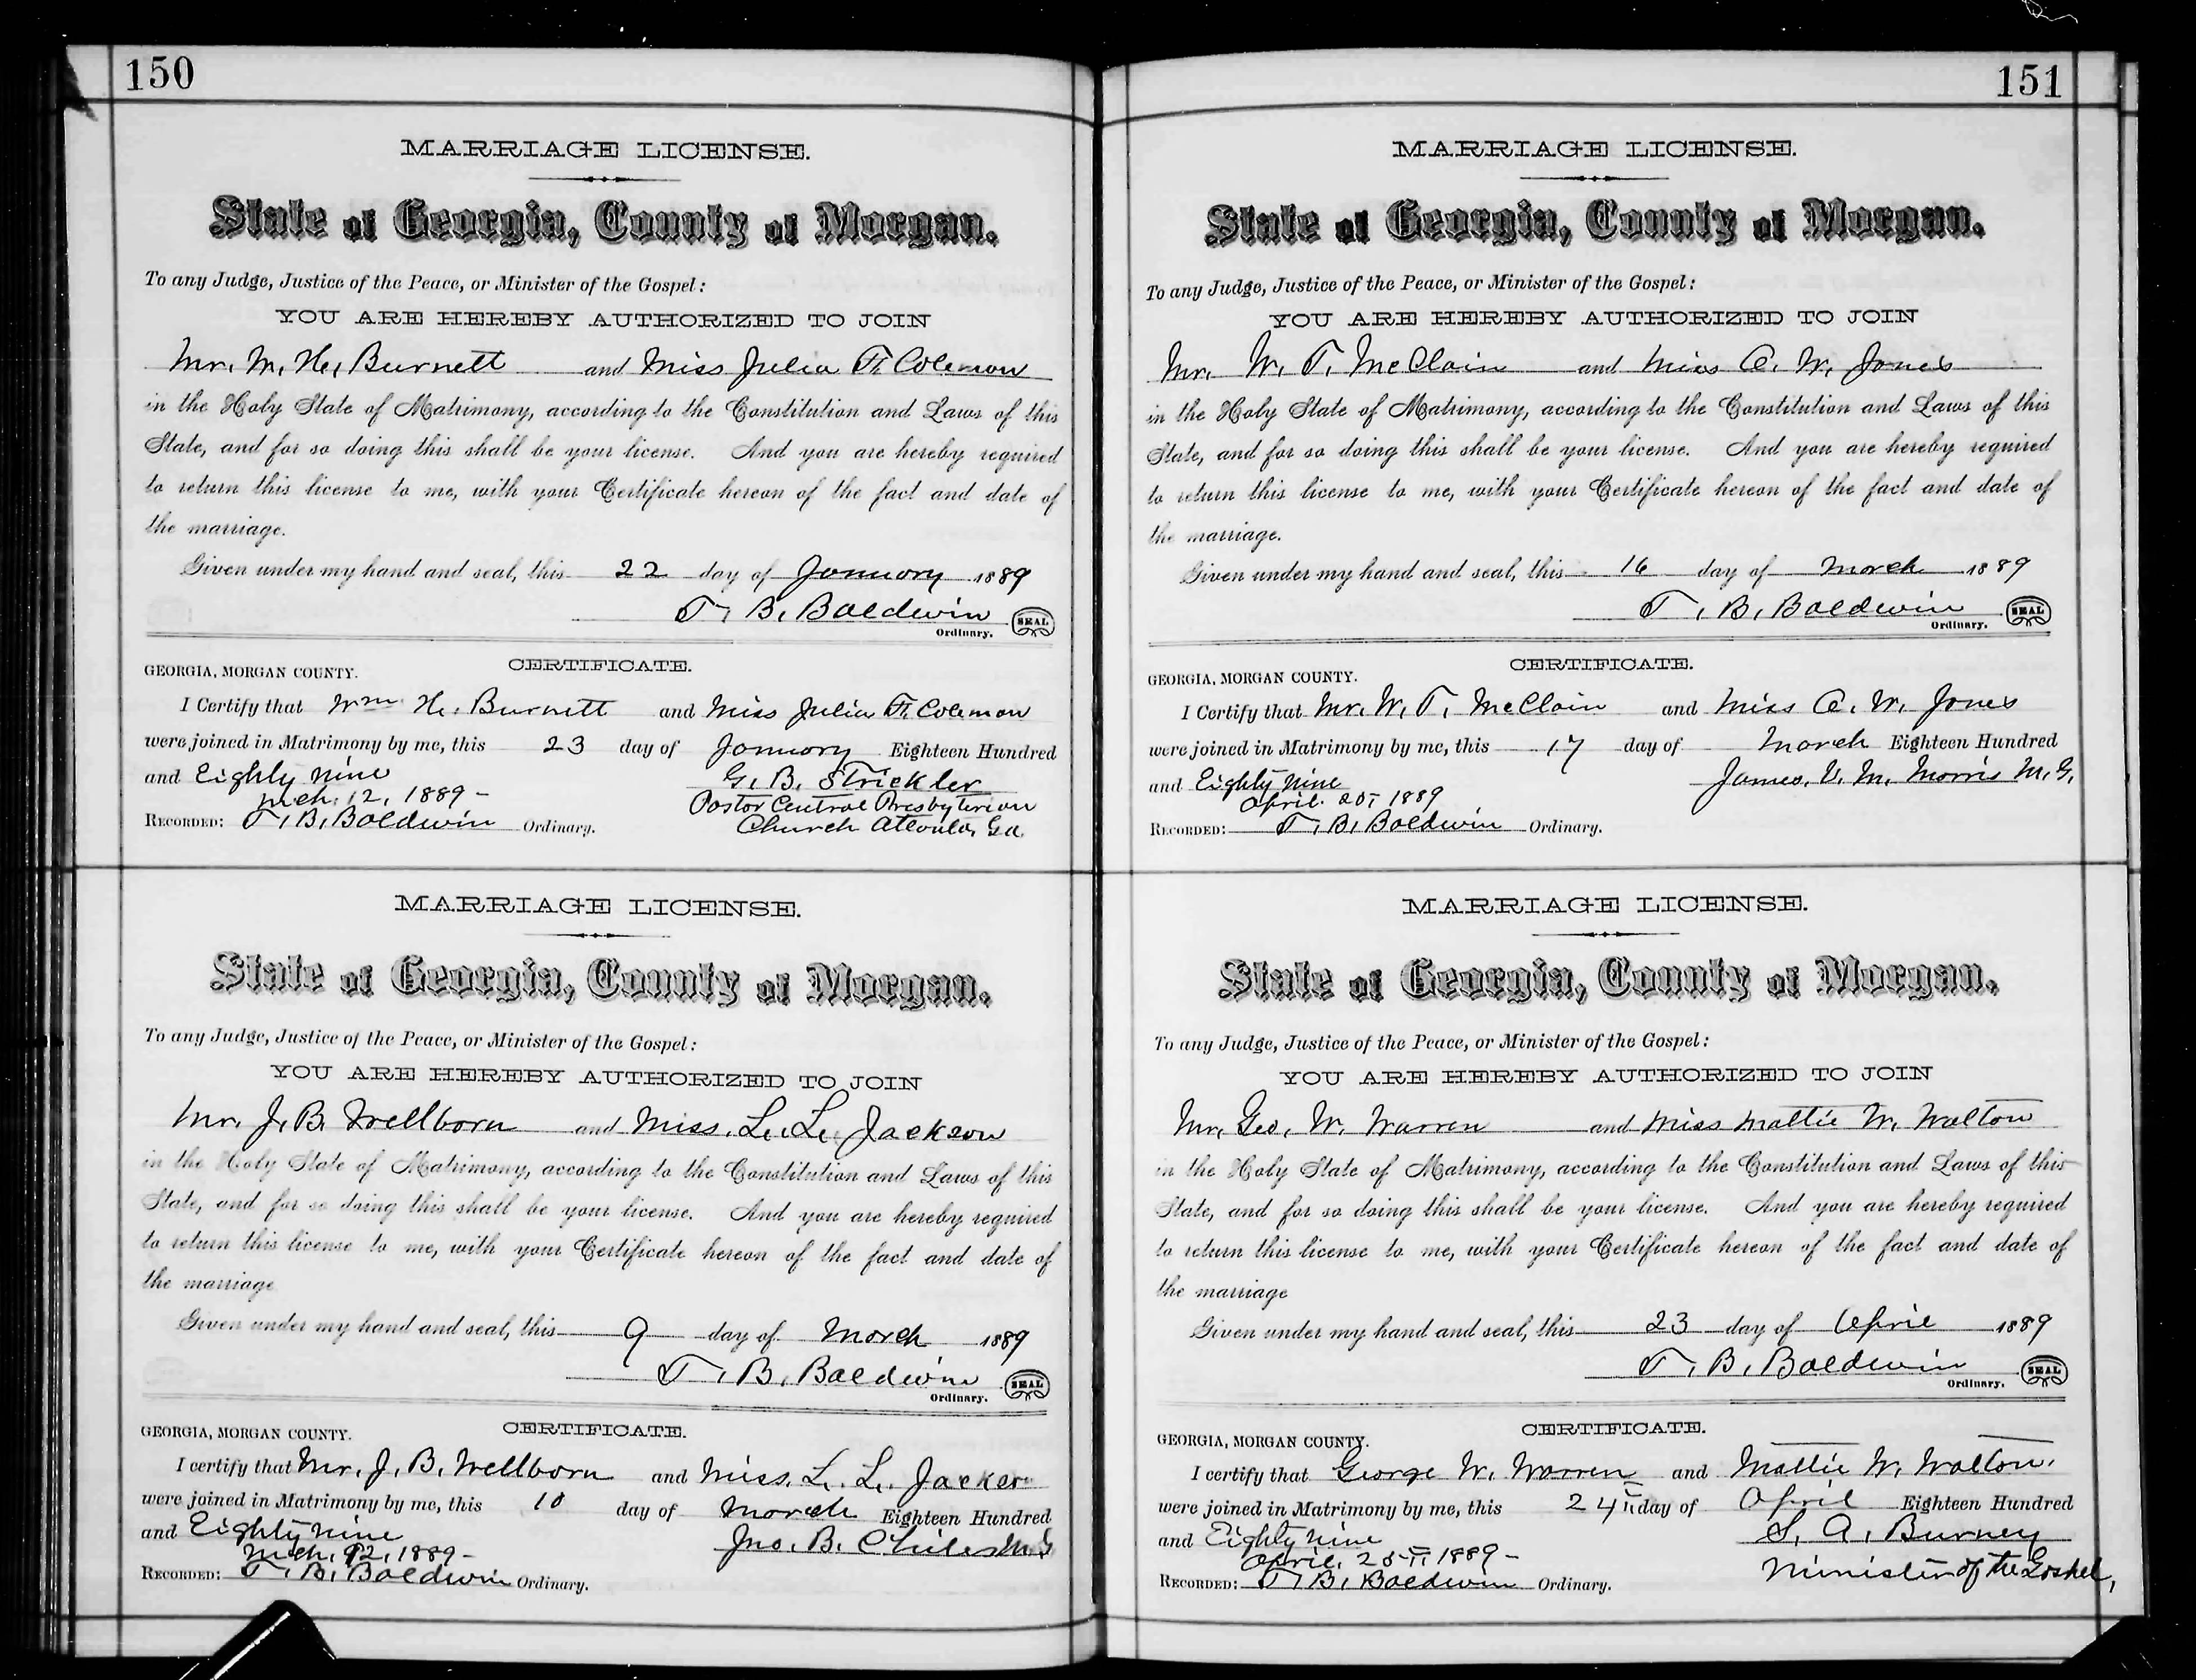 150
MARRIAGE LICENSE.
State of Georgia, County of Morgan.
To any Judge, Justice of the Peace, or Minister of the Gospel:
YOU ARE HEREBY AUTHORIZED TO JOIN
Mr. M. H. Burnett and Miss Julia F. Coleman
in the Holy State of Matrimony, according to the Constitution and Laws of this
State, and for so doing this shall be your license. And you are hereby required
to return this license to me, with your Certificate hereon of the fact and date of
the marriage.
Given under my hand and seal, this 22 day of January 1889
T. B. Baldwin
Ordinary. SEAL
CERTIFICATE.
GEORGIA, MORGAN COUNTY.
I Certify that Wm H. Burnett and Miss Julia F. Coleman
were joined in Matrimony by me, this 23 day of January Eighteen Hundred
and Eighty nine G. B. Strickler
Mch. 12, 1889 - Pastor Central Presbyterian
RECORDED: T. B. Baldwin Ordinary. Church Atlanta, Ga.
MARRIAGE LICENSE.
State of Georgia, County of Morgan.
To any Judge, Justice of the Peace, or Minister of the Gospel:
YOU ARE HEREBY AUTHORIZED TO JOIN
Mr. J. B. Wellborn and Miss. L. L. Jackson
in the Holy State of Matrimony, according to the Constitution and Laws of this
State, and for so doing this shall be your license. And you are hereby required
to return this license to me, with your Certificate hereon of the fact and date of
the marriage
Given under my hand and seal, this 9 day of March 1889
T. B. Baldwin
Ordinary. SEAL
CERTIFICATE.
GEORGIA, MORGAN COUNTY.
I certify that Mr. J. B. Wellborn and Miss. L. L. Jackson
were joined in Matrimony by me, this 10 day of March Eighteen Hundred
and Eighty nine Jno. B. Chiles M.G
Mch. 12, 1889 -
RECORDED: T. B. Baldwin Ordinary.
151
MARRIAGE LICENSE.
State of Georgia, County of Morgan.
To any Judge, Justice of the Peace, or Minister of the Gospel:
YOU ARE HEREBY AUTHORIZED TO JOIN
Mr. W. T. McClain and Miss A. W. Jones
in the Holy State of Matrimony, according to the Constitution and Laws of this
State, and for so doing this shall be your license. And you are hereby required
to return this license to me, with your Certificate hereon of the fact and date of
the marriage.
Given under my hand and seal, this 16 day of March 1889
T. B. Baldwin
Ordinary. SEAL
CERTIFICATE.
GEORGIA, MORGAN COUNTY.
I Certify that Mr. W. T. McClain and Miss A. W. Jones
were joined in Matrimony by me, this 17 day of March Eighteen Hundred
and Eighty nine James. V. M. Morris M.G.
April. 20, 1889
RECORDED: T. B. Baldwin Ordinary.
MARRIAGE LICENSE.
State of Georgia, County of Morgan.
To any Judge, Justice of the Peace, or Minister of the Gospel:
YOU ARE HEREBY AUTHORIZED TO JOIN
Mr. Geo. W. Warren and Miss Mattie W. Walton
in the Holy State of Matrimony, according to the Constitution and Laws of this
State, and for so doing this shall be your license. And you are hereby required
to return this license to me, with your Certificate hereon of the fact and date of
the marriage
Given under my hand and seal, this 23 day of April 1889
T. B. Baldwin
Ordinary. SEAL
CERTIFICATE.
GEORGIA, MORGAN COUNTY.
I certify that George W. Warren and Mattie W. Walton.
were joined in Matrimony by me, this 24 day of April Eighteen Hundred
and Eighty nine S. A. Burney
April. 25 1889 - Minister of the Gospel,
RECORDED: T. B. Baldwin Ordinary.